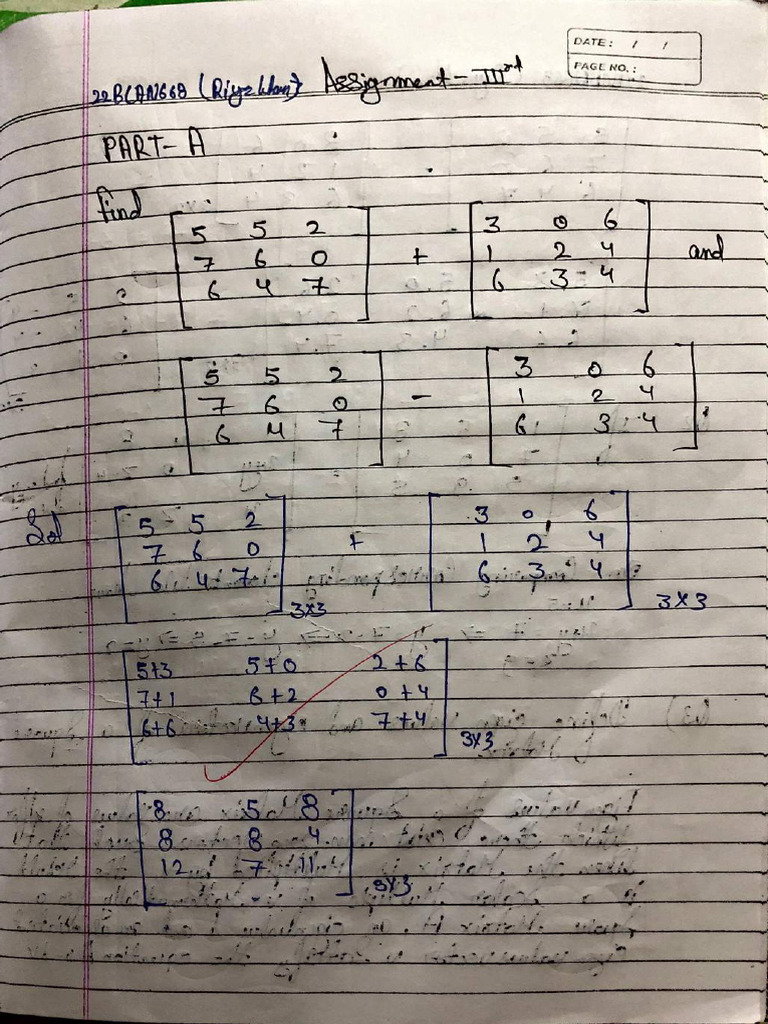 DATE: / /
PAGE NO.:
22BCAN668 (Riyaz khan) Assignment - III rd
PART-A
find
5 5 2
7 6 0
6 4 7
+
3 0 6
1 2 4
6 3 4
and
5 5 2
7 6 0
6 4 7
-
3 0 6
1 2 4
6 3 4
Sol
5 5 2
7 6 0
6 4 7
3x3
+
3 0 6
1 2 4
6 3 4
3x3
5+3 5+0 2+6
7+1 6+2 0+4
6+6 4+3 7+4
3x3
8 5 8
8 8 4
12 7 11
3x3